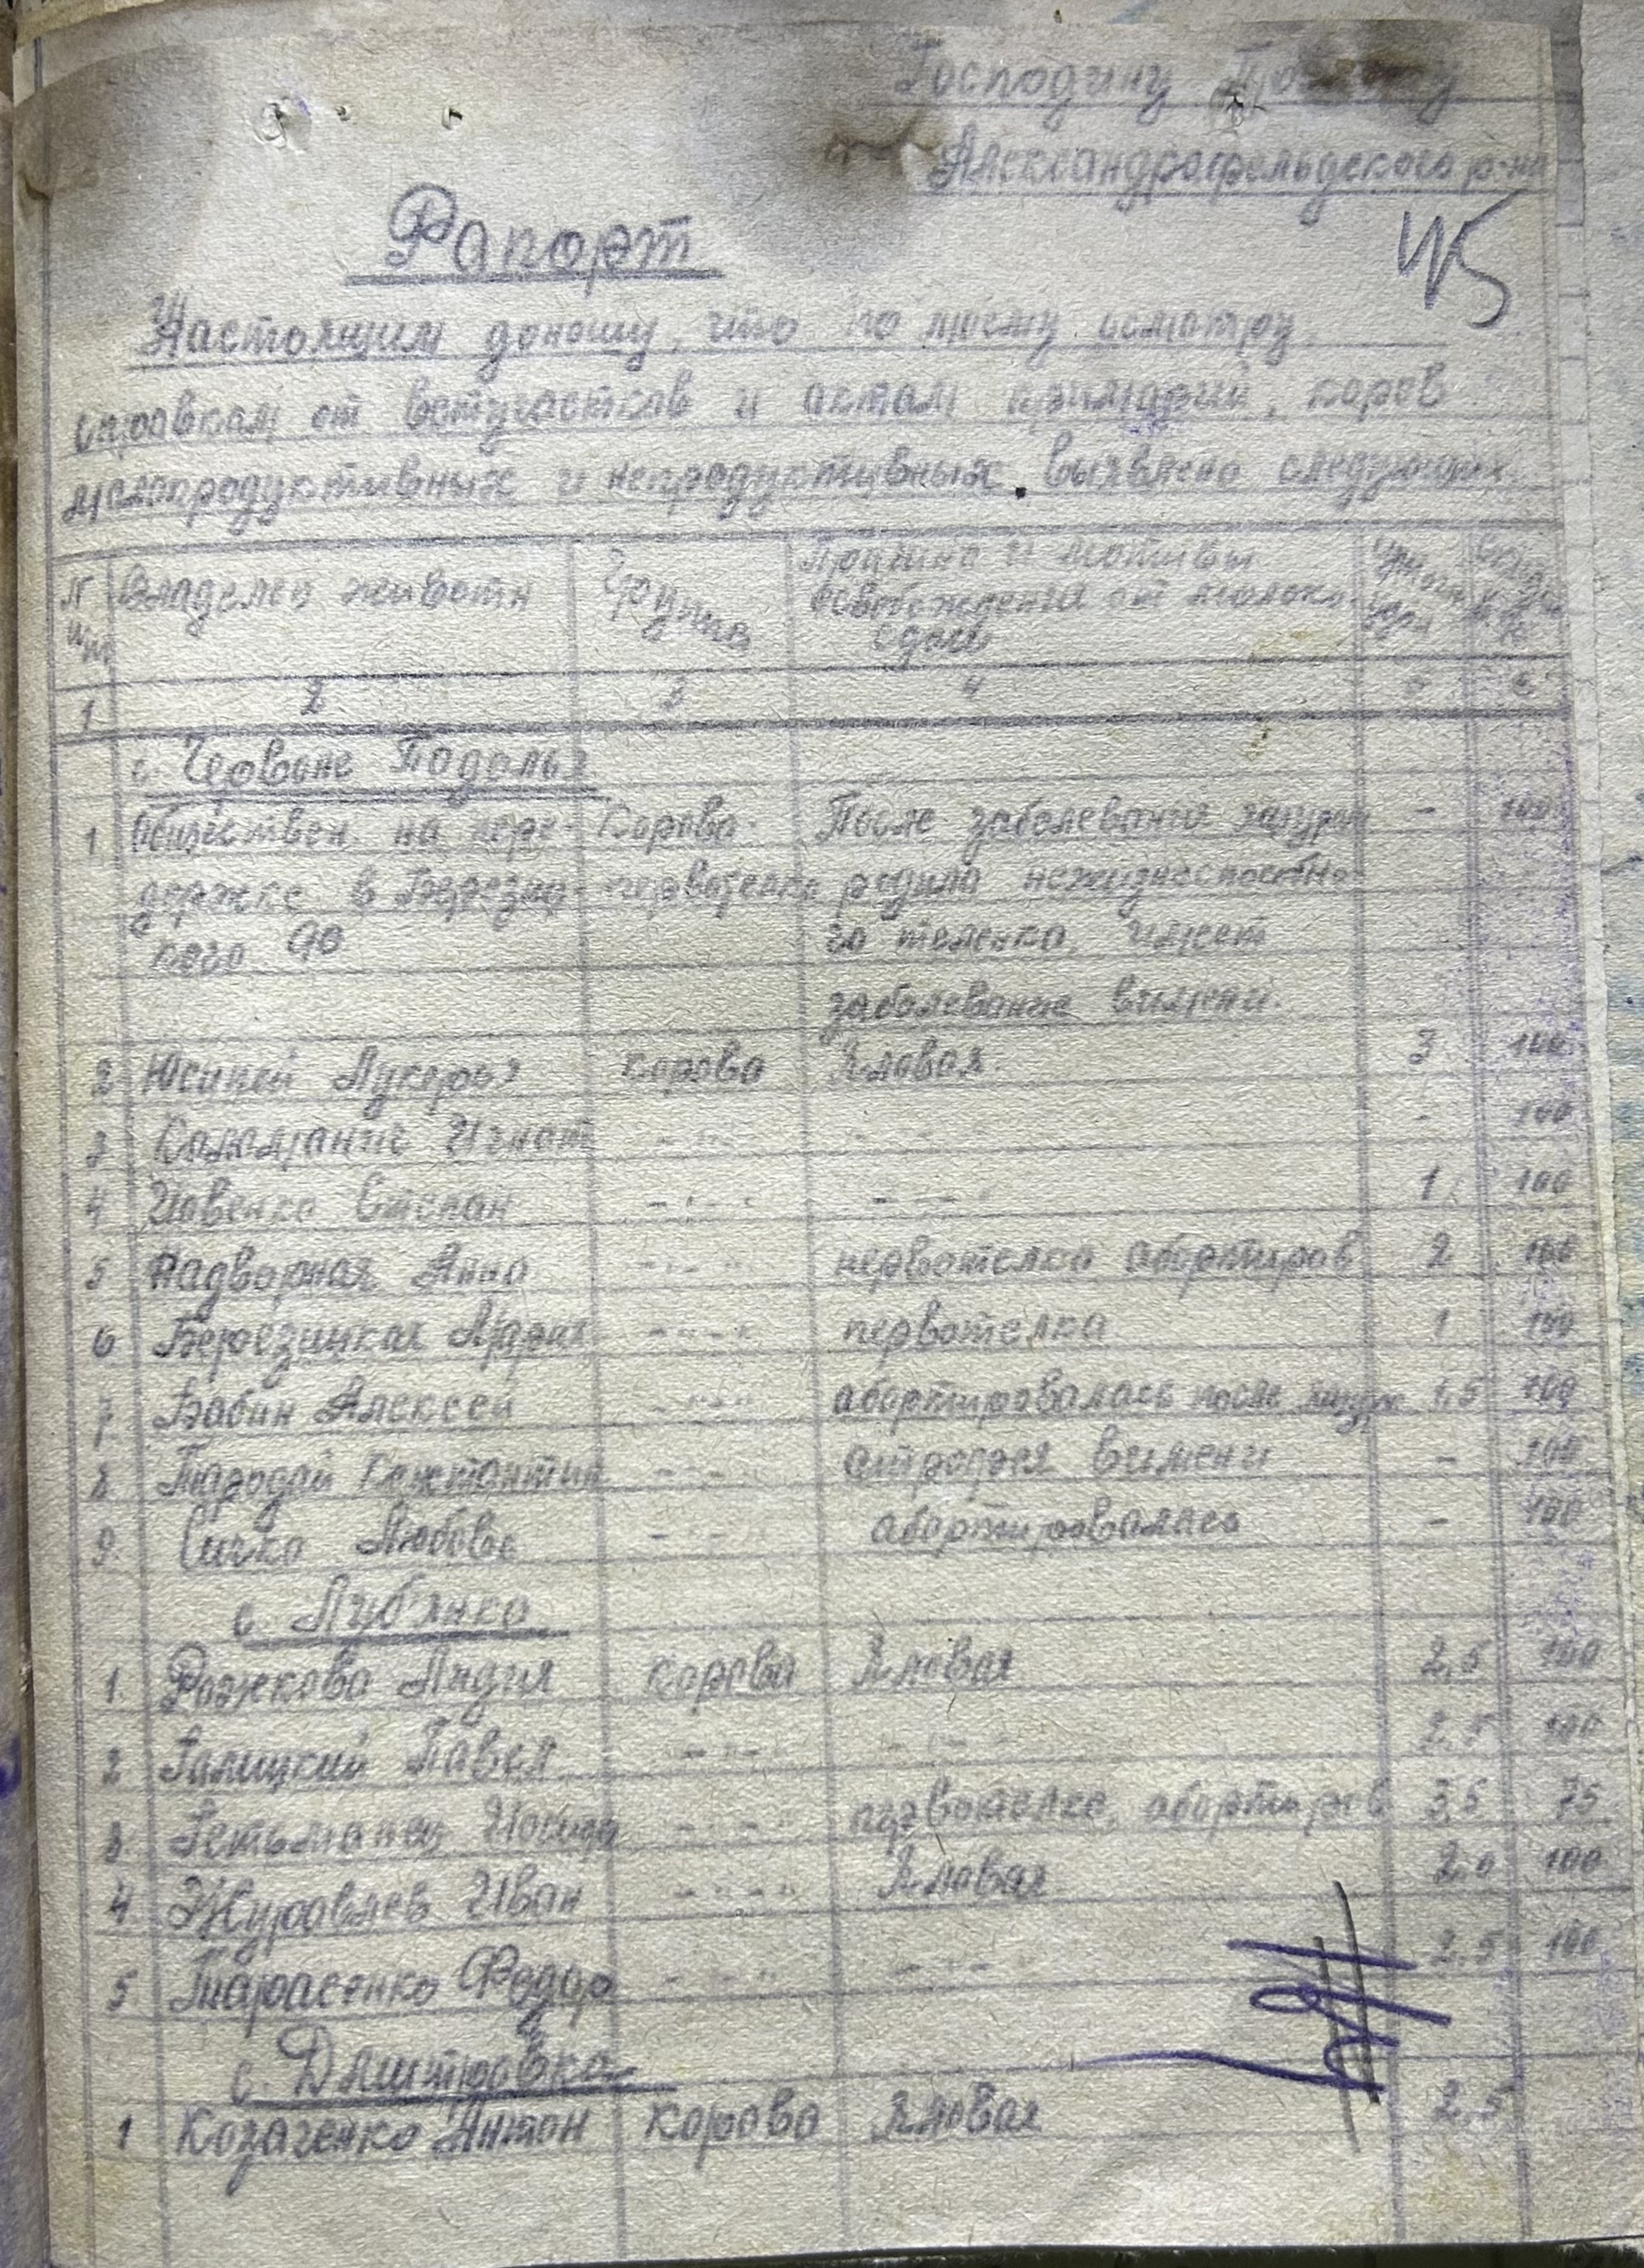 Господину
Александрофельдского р-на
45
Рапорт
Настоящим доношу, что по моему осмотру
справкам от ветучастков и актам примарий, коров
малопродуктивных и непродуктивных. выявлено следующих
N Владелец животн Группа Причина и мотивы
освобождения от молоко-
сдачи
1 2 3 4 5 6
с. Червоне Подолья
1 Обществен. на пере- Корова После заболевания - 100
держке в первотелка родила нежизнеспособно-
го теленка, имеет
заболевание вымени.
2 Лукерья корова Яловая 3 100
3 Игнат -"- -"- - 100
4 Степан -"- -"- 1 100
5 Надворная Анна -"- первотелка абортиров 2 100
6 Березицкая Мария -"- первотелка 1 100
7 Бабин Алексей -"- абортировалась после 1,5 100
8. Константин -"- атрофия вимени - 100
9. Сичко Любовь -"- абортировалась - 100
с. Лубянко
1. Рожкова Лидия корова Яловая 2,5 100
2 Галицкий Павел -"- -"- 2,5 100
3. Гетьманец -"- первотелка, абортиров 3,5 75
4. Журавлев Иван -"- Яловая 2,0 100
5 Тарасенко Федор -"- -"- 2,5 100
с. Дмитровка
1 Козаченко Антон корова Яловая 2,5